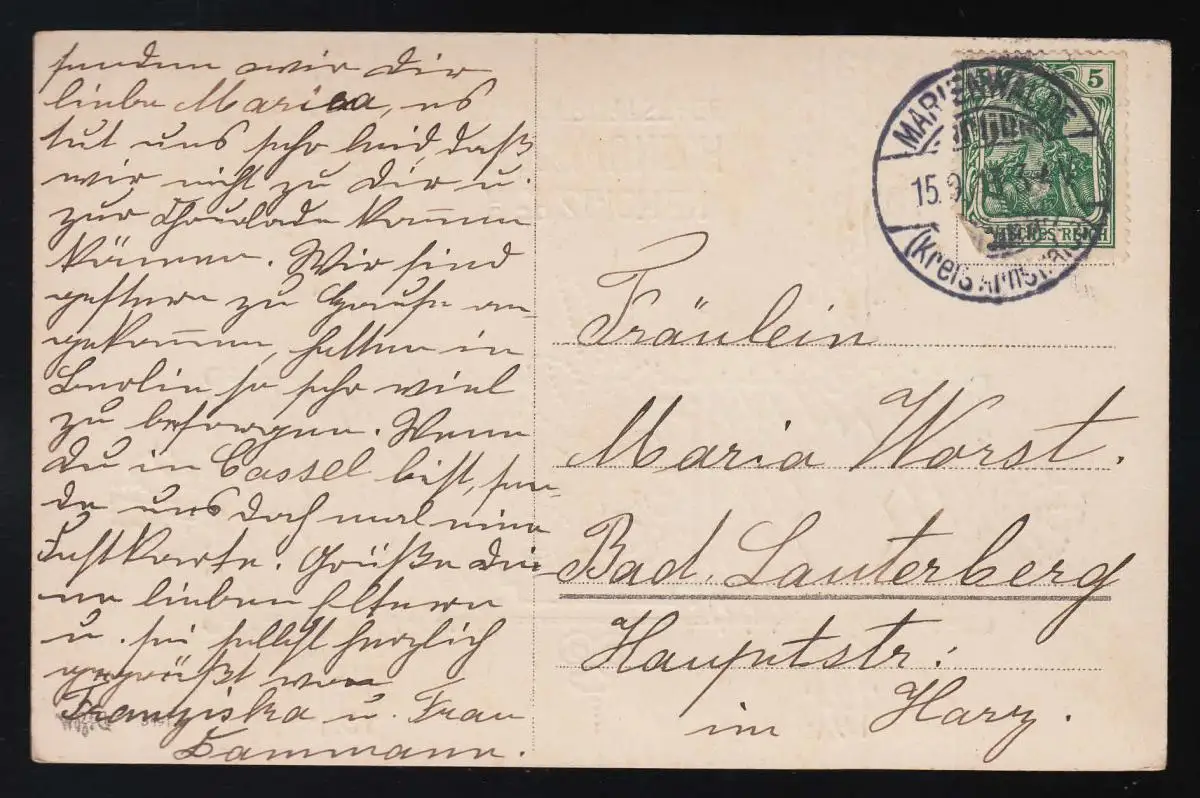 senden wir Dir
liebe Maria, es
tut uns sehr leid, daß
wir nicht zu Dir u.
zur kommen
können. Wir sind
gestern zu Hause an-
gekommen, hatten in
Berlin so sehr viel
zu besorgen. Wenn
Du in Cassel bist, sen-
de uns doch mal eine
Karte. Grüße Dei-
ne lieben Eltern
u. sei selbst herzlich
gegrüßt von
Franziska u. Frau
Lammann.
5
MARIENWALDE
15.9.
(Kreis Arnswalde)
REICH
Fräulein
Maria Worst.
Bad. Lauterberg
Hauptstr:
im Harz.